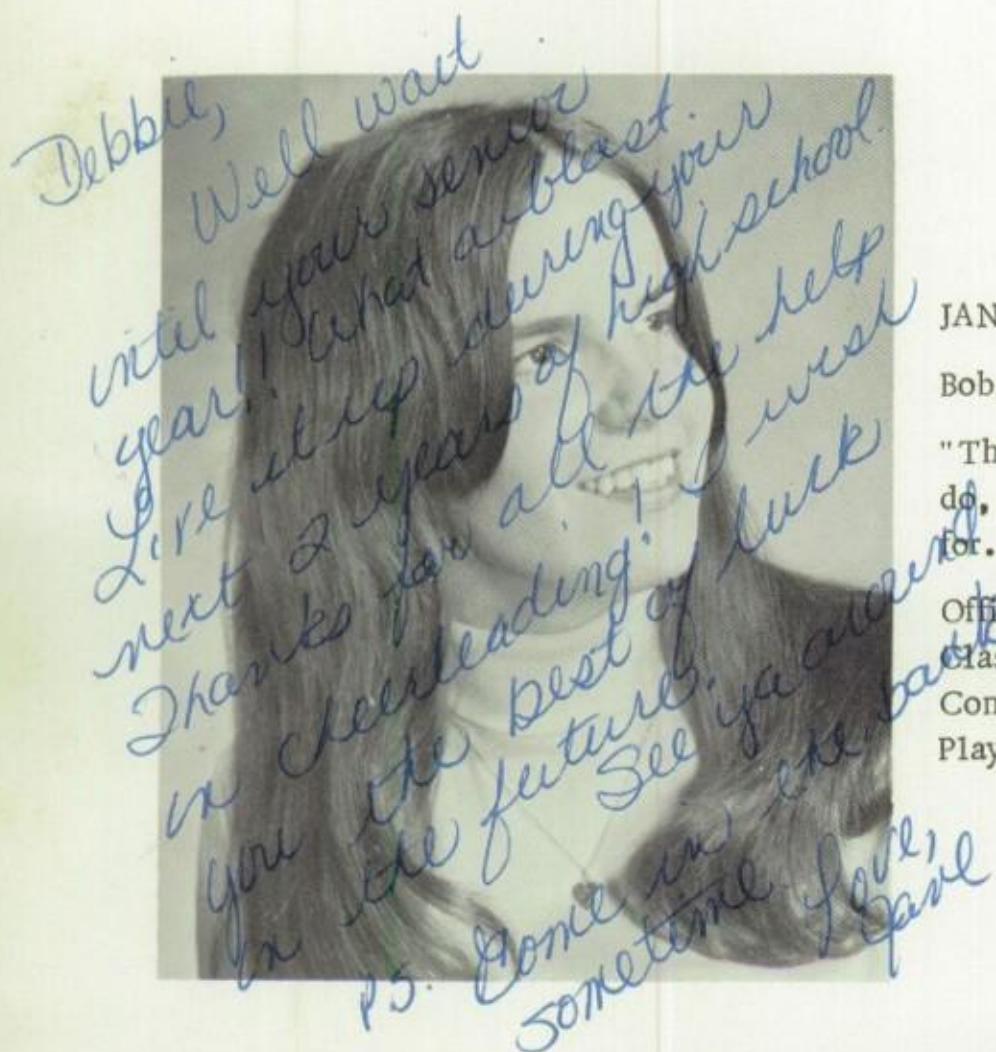 Debbie,
Well wait
until your senior
year!! What a blast.
Live it up during your
next 2 years of high school.
Thanks for all the help
in cheerleading! I wish
you the best of luck
in the future. See ya around
P.S. Come in the bank
sometime Love,
Jane
JAN
Bob
"Th
do,
for.
Offi
Clas
Con
Play